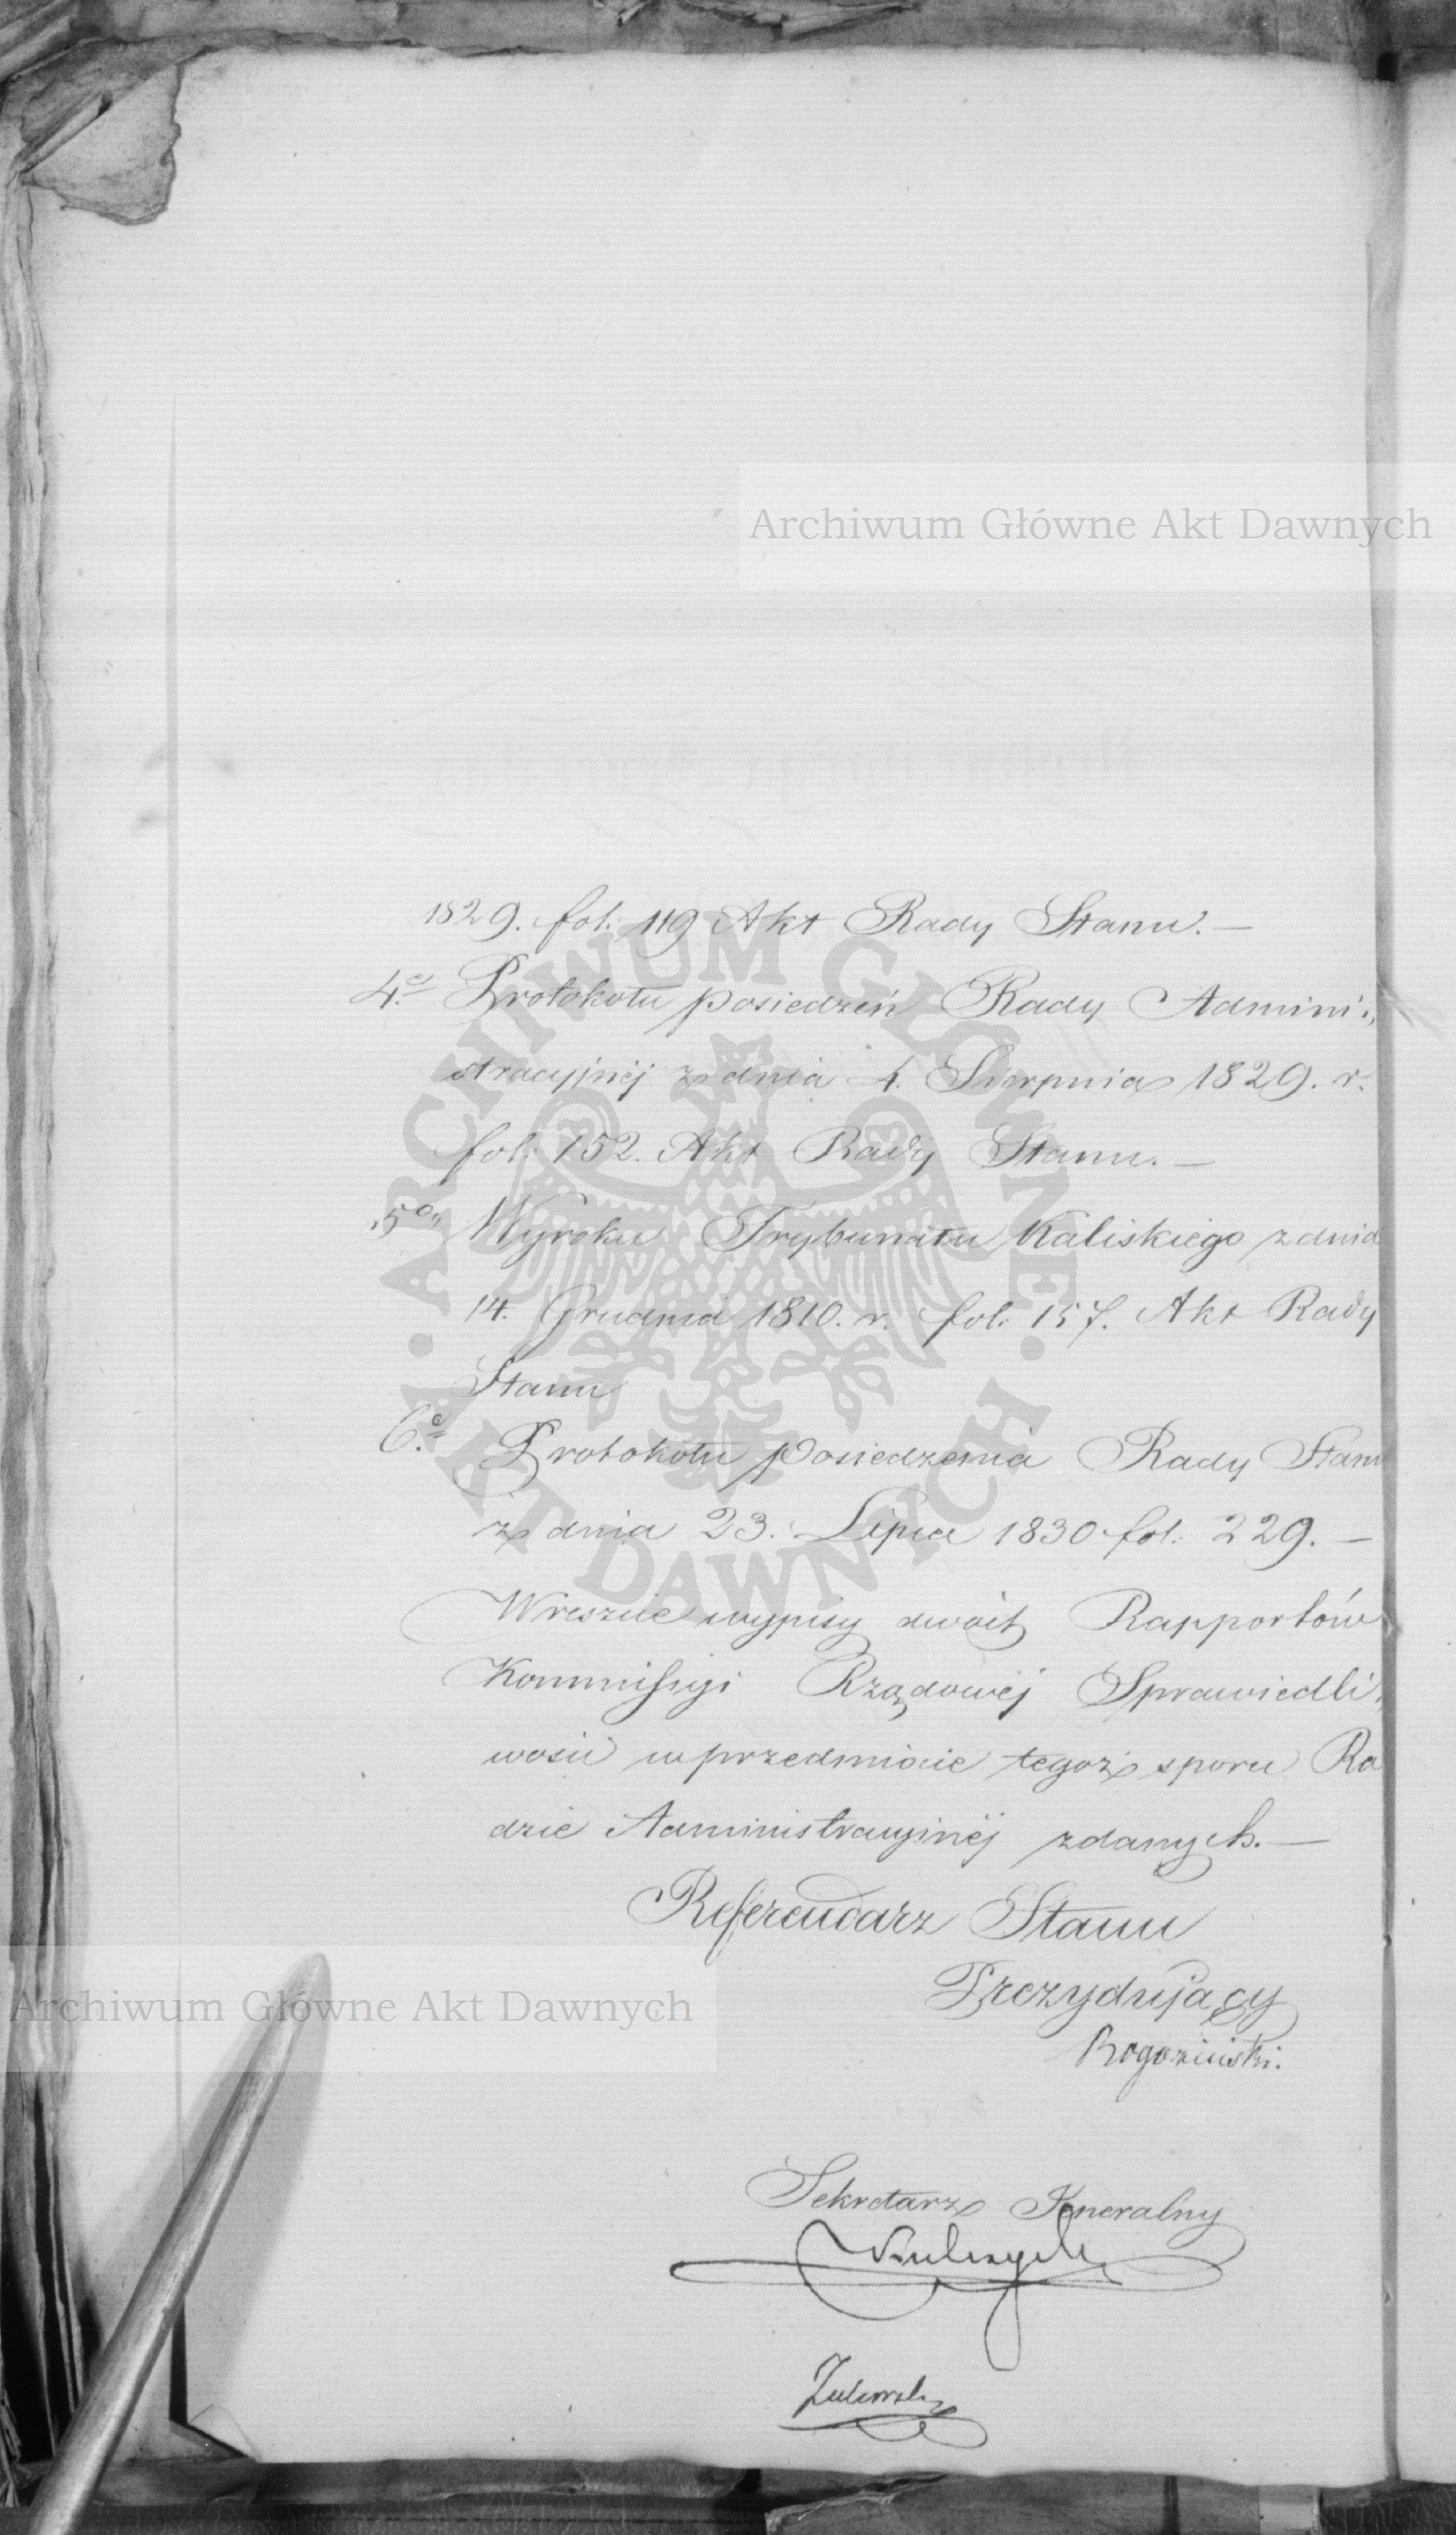 Archiwum Główne Akt Dawnych
1829. fol. 119 Akt Rady Stanu. —
4.e Protokołu posiedzeń Rady Admini„
stracyjnéj z dnia 4. Sierpnia 1829. r.
fol. 152. Akt Rady Stanu. —
5o„ Wyroku Trybunału Kaliskiego z dnia
14. Grudnia 1810. r. fol. 157. Akt Rady
Stanu
6.e Protokołu posiedzenia Rady Stanu
z dnia 23. Lipca 1830 fol. 229. —
Wreszcie wypisy dwóch Rapportów
Kommissyi Rządowéj Sprawiedli„
wości w przedmiocie tegoż sporu Ra
dzie Administracyjnéj zdanych. —
Referendarz Stanu
Prezydujący
Rogoziński.
Archiwum Główne Akt Dawnych
Sekretarz Jeneralny
ARCHIWUM GŁÓWNE
AKT DAWNYCH